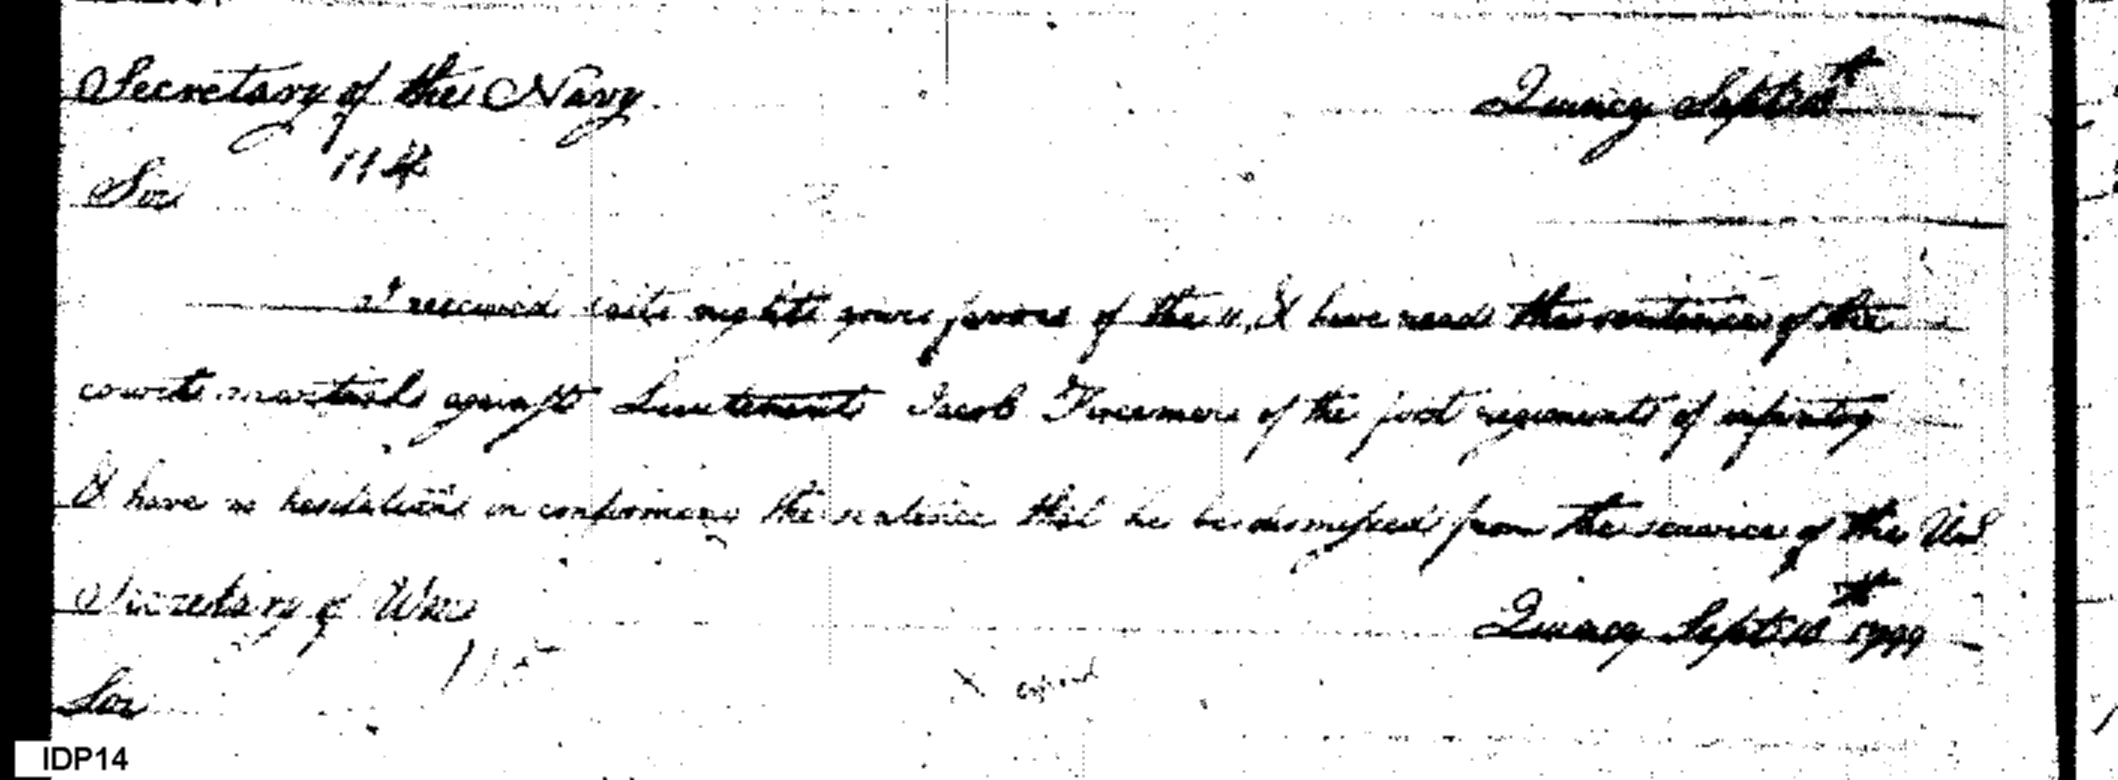 Secretary of the Navy. Quincy Sept 18th
114
Sir
I received last night your favor of the 11, I have read the sentence of the
court martial against Lieutenant Jacob of the first regiment of infantry
I have no hesitation in confirming the sentence that he be dismissed from the service of the US
Secretary of War Quincy Sept 18th 1799
115
X copied
Sir
IDP14